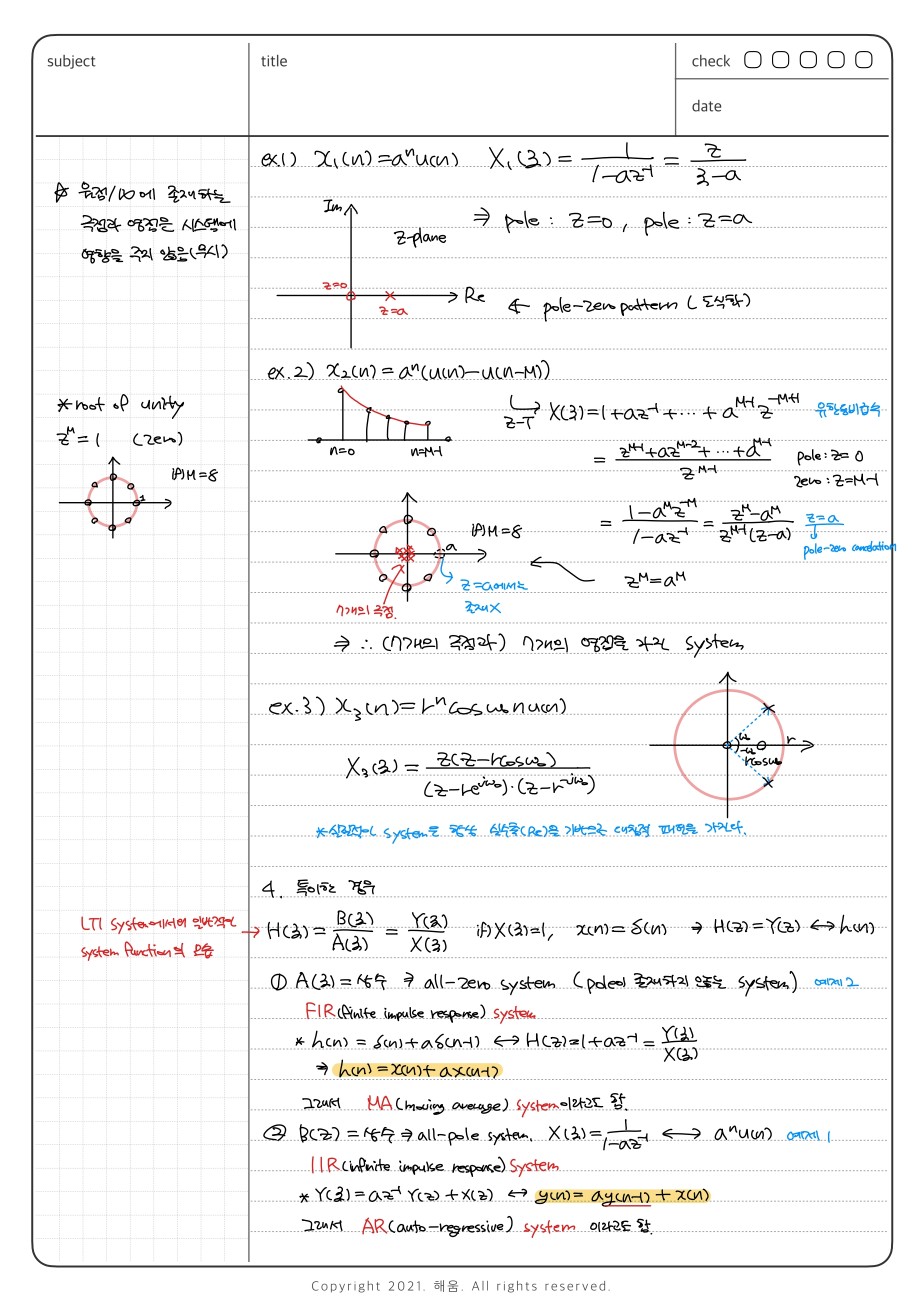 subject
title
check
date
☆ 원점/∞에 존재하는
극점과 영점은 시스템에
영향을 주지 않음(무시)
ex.1) x₁(n)=aⁿu(n) X₁(z) = 1/(1-az⁻¹) = z/(z-a)
⇒ pole : z=0 , pole : z=a
Im
z-plane
z=0
z=a
Re
← pole-zero pattern (도식화)
ex.2) x₂(n) = aⁿ(u(n)-u(n-M))
n=0
n=M-1
z-T X(z)=1+az⁻¹+ ⋯ + a^(M-1) z^(-M+1) 유한등비급수
= (z^(M-1)+az^(M-2)+ ⋯ +a^(M-1))/z^(M-1)
pole: z=0
zero: z=M-1
= (1-a^M z^(-M))/(1-az⁻¹) = (z^M-a^M)/(z^(M-1)(z-a))
z=a
pole-zero cancelation
z^M=a^M
* root of unity
z^M=1 (zero)
if) M=8
1
if) M=8
a
z=a에서는
존재X
7개의 극점.
⇒ ∴ (7개의 극점과) 7개의 영점을 가진 system
ex.3) X₃(n)=rⁿcosω₀nu(n)
X₃(z) = z(z-rcosω₀)/((z-re^(jω₀))·(z-r^(-jω₀)))
ω₀
-ω₀
r
rcosω₀
*실질적인 system은 항상 실수축(Re)을 기반으로 대칭적 패턴을 가진다.
4. 특이한 경우
LTI system에서의 일반적인
system function의 모습
H(z) = B(z)/A(z) = Y(z)/X(z) if) X(z)=1, x(n)=δ(n) ⇒ H(z)=Y(z) ↔ h(n)
① A(z)=상수 ⇒ all-zero system (pole이 존재하지 않는 system) 예제2
FIR(finite impulse response) system
* h(n) = δ(n)+aδ(n-1) ↔ H(z)=1+az⁻¹ = Y(z)/X(z)
⇒ h(n)=x(n)+ax(n-1)
그래서 MA(moving average) system이라고도 함.
② B(z)=상수 ⇒ all-pole system. X(z)=1/(1-az⁻¹) ↔ aⁿu(n) 예제1
IIR(infinite impulse response) System
* Y(z)=az⁻¹Y(z)+X(z) ↔ y(n)= ay(n-1)+x(n)
그래서 AR(auto-regressive) system 이라고도 함.
Copyright 2021. 해움. All rights reserved.